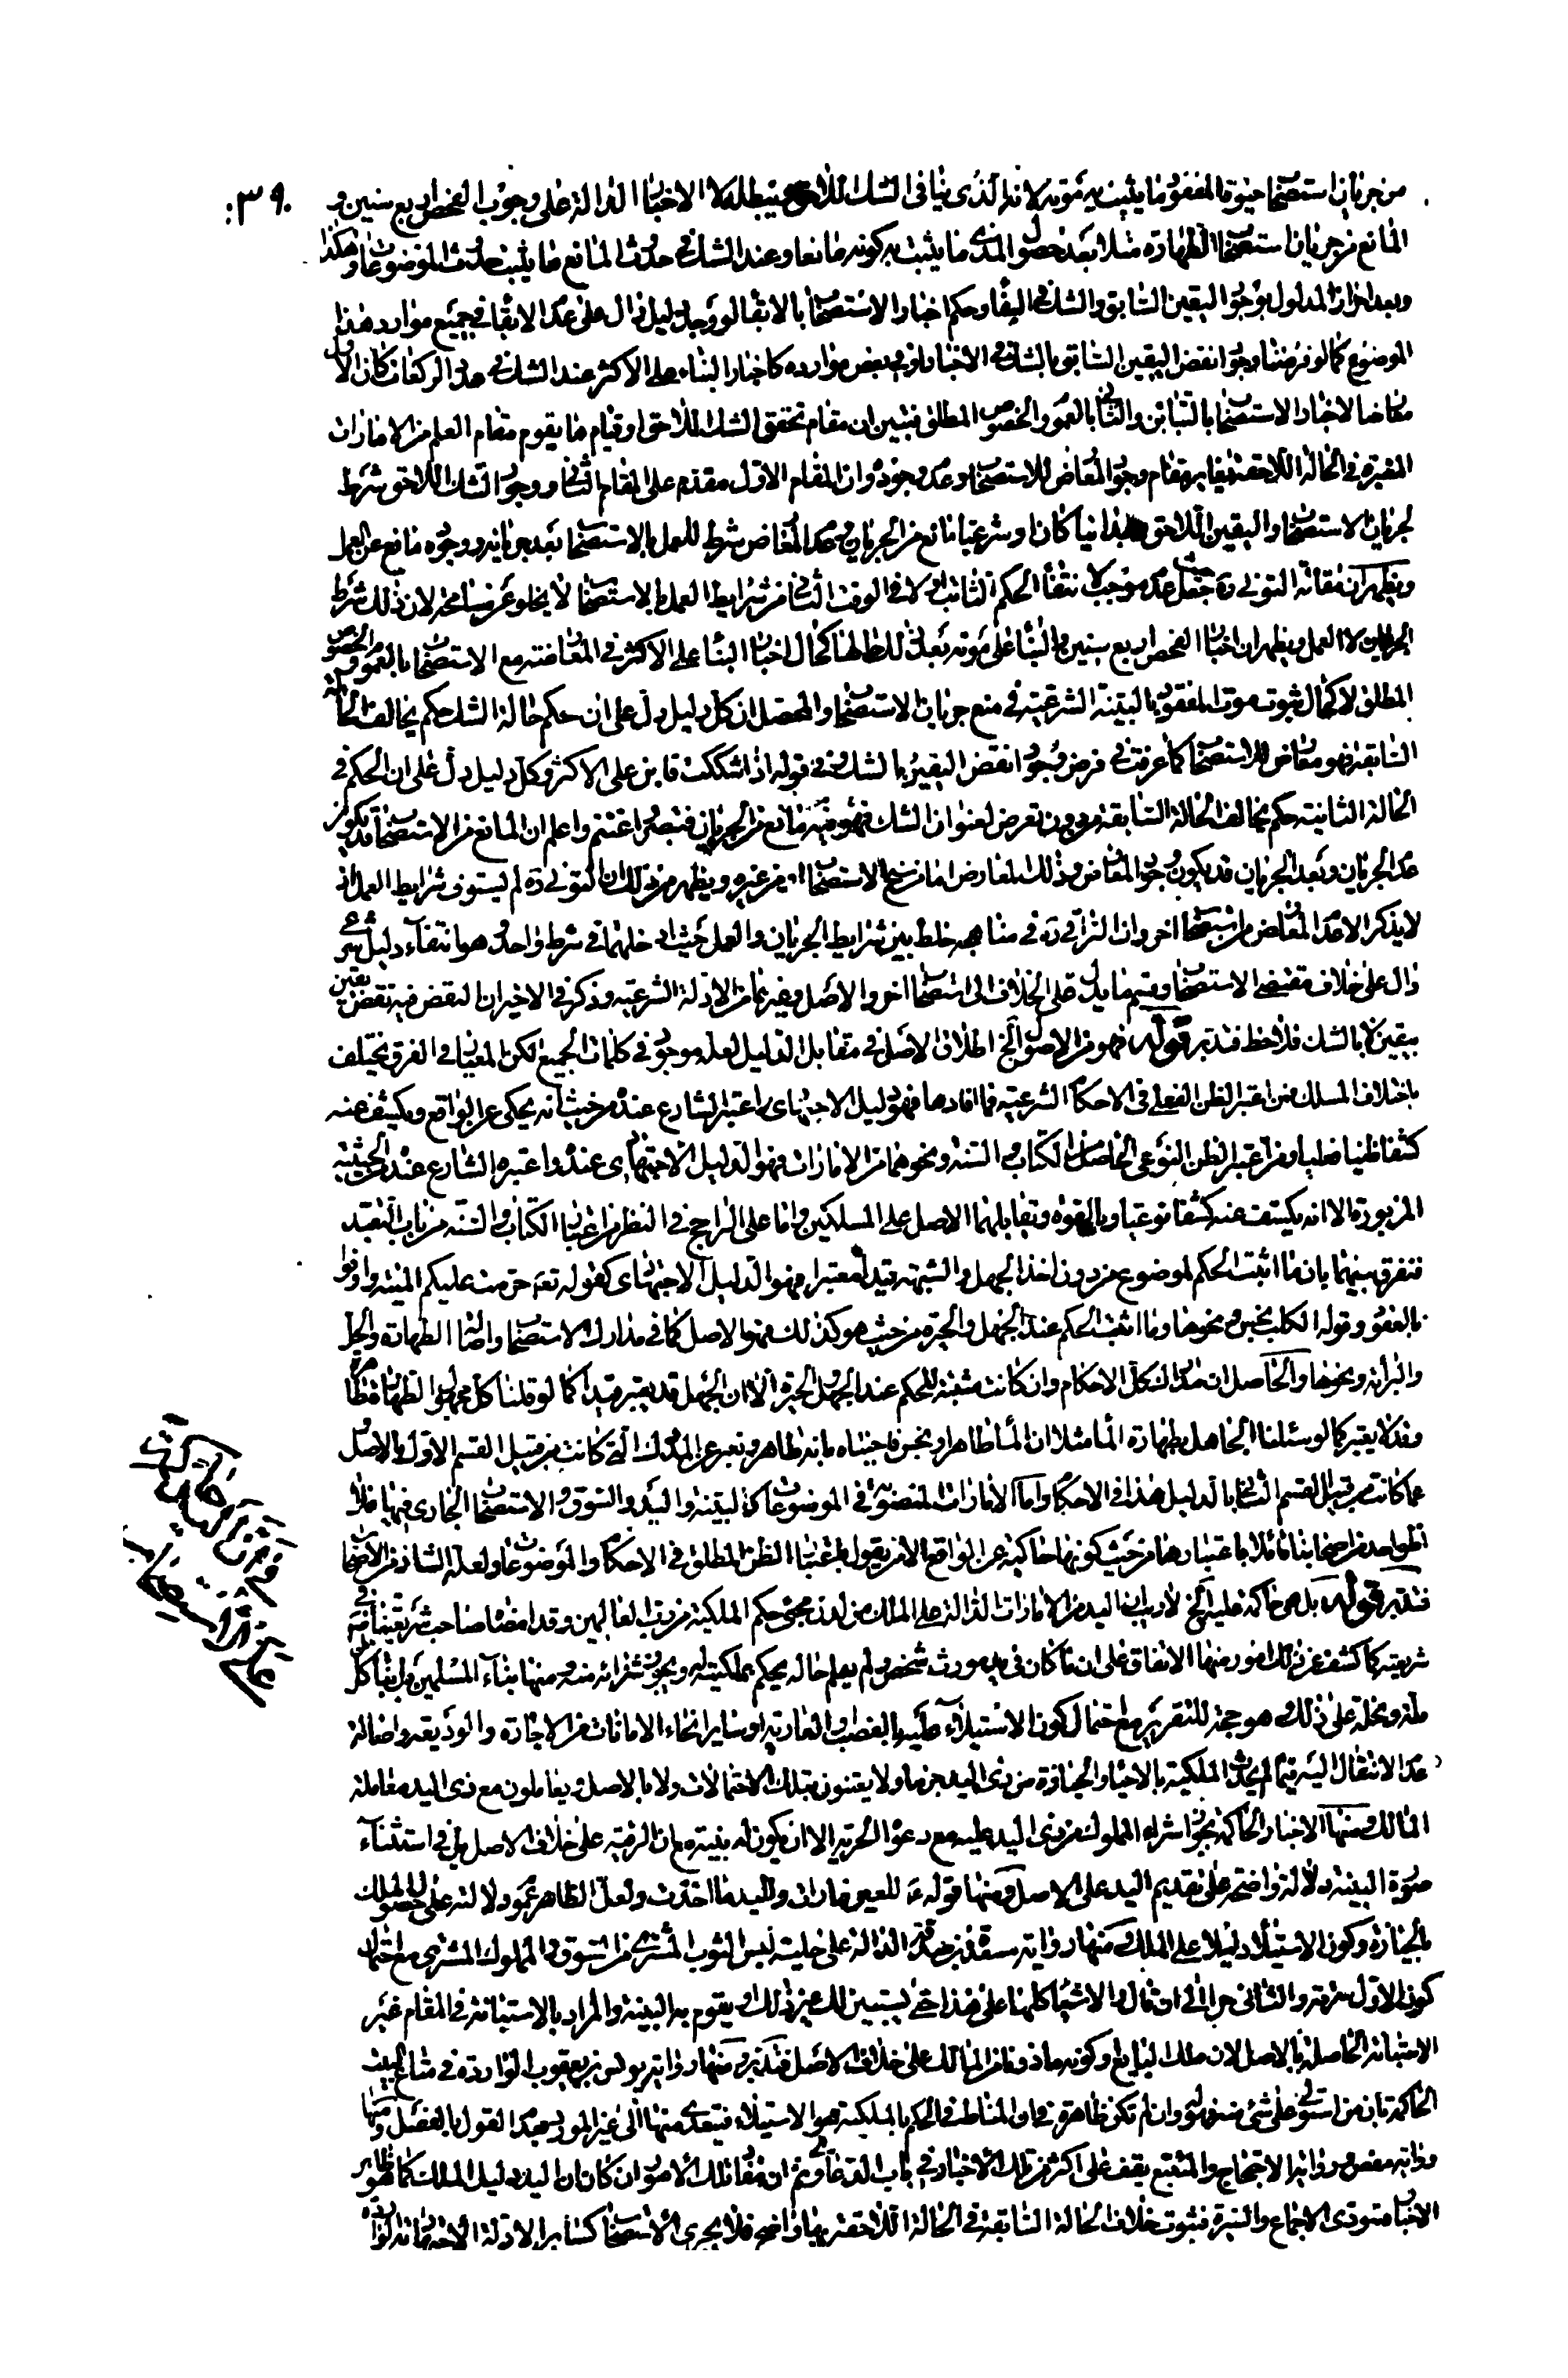 ٣٩٠
من جريان استصحاب حيوة المفقود ما يثبت به موته لانه الذى ينافى الشك اللاحق فيبطله لا الاخبار الدالة على وجوب الفحص اربع سنين و
المانع من جريان استصحاب الطهارة مثلا بعد حصول المذى ما يثبت به كونه مانعا وعند الشك فى حدوث المانع ما يثبت حدوث الموضوعات وهكذا
وبعد احراز المدلول بوجود اليقين السابق والشك فى البقاء وحكم اخبار الاستصحاب بالابقاء لو وجد دليل دال على عدم الابقاء فى جميع موارد هذا
الموضوع كما لو فرضنا وجوب نقض اليقين السابق بالشك فى الاخبار او فى بعض موارده كاخبار البناء على الاكثر عند الشك فى عدد الركعات كان الاول
معارضا لاخبار الاستصحاب بالتباين والثانى بالعموم والخصوص المطلق فتبين ان مقام تحقق الشك اللاحق او قيام ما يقوم مقام العلم من الامارات
المعتبرة فى الحالة اللاحقة يغاير مقام وجود المعارض للاستصحاب وعدم وجوده وان المقام الاول مقدم على المقام الثانى ووجود الشك اللاحق شرط
لجريان الاستصحاب واليقين اللاحق وجدانيا كان او شرعيا مانع من الجريان وعدم المعارض شرط للعمل بالاستصحاب بعد جريانه ووجوده مانع عن العمل
ويظهر ان مقالة التونى ره حيث جعل عدم موجب لانتفاء الحكم الثابت اولا فى الوقت الثانى من شرايط العمل بالاستصحاب لا يخلو عن مسامحة لان ذلك شرط
الجريان لا العمل ويظهر ان اخبار الفحص اربع سنين والبناء على موته بعد ذلك حالها كحال اخبار البناء على الاكثر فى المعارضة مع الاستصحاب بالعموم والخصوص
المطلق لا كحال ثبوت موت المفقود بالبينة الشرعية فى منع جريان الاستصحاب والمحصل ان كل دليل دل على ان حكم حالة الشك حكم يخالف الحالة
السابقة فهو معارض للاستصحاب كما عرفت فى فرض وجوب نقض اليقين بالشك وفى قوله اذا شككت فابن على الاكثر وكل دليل دل على ان الحكم فى
الحالة الثانية حكم يخالف الحالة السابقة من دون تعرض لعنوان الشك فهو فيه مانع من الجريان فتبصر واغتنم واعلم ان المانع من الاستصحاب قد يكون
عدم الجريان وبعد الجريان قد يكون وجود المعارض وذلك المعارض اما من سنخ الاستصحاب او من غيره ويظهر من ذلك ان التونى ره لم يستوف شرايط العمل اذ
لا يذكر الا عدم المعارض من استصحاب اخر وان النراقى ره فى مناهجه خلط بين شرايط الجريان والعمل حيث ادخلهما فى شرط واحد هو انتفاء دليل شرعى
دال على خلاف مقتضى الاستصحاب وقسم ما يدل على الخلاف الى استصحاب اخر والاصل وغيرهما من الادلة الشرعية وذكر فى الاخير ان النقض فيه نقض يقين
بيقين لا بالشك فلاحظ فتدبر قوله فهو من الاصول الخ اطلاق الاصل فى مقابل الدليل لعله موجود فى كلمات الجميع لكن المعيار فى الفرق يختلف
باختلاف المسلك فمن اعتبر الظن الفعلى فى الاحكام الشرعية فما افادها فهو دليل الاجتهادى اعتبر الشارع عنده من حيث انه يحكى عن الواقع ويكشف عنه
كشفا ظنيا فعليا ومن اعتبر الظن النوعى الحاصل من الكتاب والسنة ونحوهما من الامارات فهو الدليل الاجتهادى عنده واعتبره الشارع عنده من الحيثية
المزبورة الا انه يكشف عنه كشفا نوعيا وبالقوة ويقابلهما الاصل على المسلكين واما على الراجح فى النظر من اعتبار الكتاب والسنة من باب التعبد
فنفرق بينهما بان ما اثبت الحكم لموضوع من دون اخذ الجهل والشبهة قيدا معتبرا فهو الدليل الاجتهادى كقوله تعه حرمت عليكم الميتة واوفوا
بالعقود وقوله الكلب نجس ونحوها وما اثبت الحكم عند الجهل والحيرة من حيث هو كذلك فهو الاصل كما فى مدارك الاستصحاب واصالة الطهارة والحل
والبرائة ونحوها والحاصل ان مدارك كل الاحكام وان كانت مثبتة للحكم عند الجهل والحيرة الا ان الجهل قد يعتبر قيدا كما لو قلنا كل مجهول الطهارة طاهر
وقد لا يعتبر كما لو سئلنا الجاهل بطهارة الماء مثلا ان الماء طاهر او نجس فاجبناه بانه طاهر ونعبر عن المدرك التى كانت من قبيل القسم الاول بالاصل
عما كانت من قبيل القسم الثانى بالدليل هذا فى الاحكام واما الامارات المنصوبة فى الموضوعات كالبينة واليد والسوق والاستصحاب الجارى فيها فلا
اظن احد من اصحابنا قائلا باعتبارها من حيث كونها حاكية عن الواقع الا من يقول باعتبار الظن المطلق فى الاحكام والموضوعات ولعله الشاذ من الاصحاب
فتدبر قوله بل هى حاكمة عليه الخ لا ريب ان اليد من الامارات الدالة على الملك من لدن مجئى حكم الملكية من رب العالمين وقد امضاها صاحب شريعتنا فى
شريعته كما كشف عن ذلك امور منها الاتفاق على ان ما كان فى يد مورث شخص لم يعلم حاله يحكم بملكيته له ويجوز شرائه منه ومنها بناء المسلمين بل بناء كل
ملة ونحلة على ذلك وهو حجة للتقرير مع احتمال كون الاستيلاء عليه بالغصب او العارية او ساير انحاء الامانات من الاجارة والوديعة واصالة
عدم الانتقال اليه فيما لم يحدث الملكية بالاحياء والحيازة من ذى اليد جزما ولا يعتنون بتلك الاحتمالات ولا بالاصل ويعاملون مع ذى اليد معاملة
المالك ومنها الاخبار الحاكمة بجواز شراء المملوك من ذى اليد عليه مع دعوى الحرية الا ان يكون له بينة مع ان الرقية على خلاف الاصل بل فى استثناء
صورة البينة دلالة واضحة على تقديم اليد على الاصل ومنها قوله ع للعين ما رات ولليد ما اخذت ولعل الظاهر عموم دلالته على حصول الملك
بالحيازة وكون الاستيلاء دليلا على الملك ومنها رواية مسعدة بن صدقة الدالة على حلية لبس الثوب المشترى من السوق والمملوك المشترى مع احتمال
كون الاول سرقة والثانى حرا الى ان قال والاشياء كلها على هذا حتى يستبين لك غير ذلك او يقوم به البينة والمراد بالاستبانة فى المقام غير
الاستبانة الحاصلة بالاصل لان ملك البايع وكونه ماذونا من المالك على خلاف الاصل فتدبر ومنها رواية يونس بن يعقوب الواردة فى متاع البيت
الحاكمة بان من استولى على شئ منه فهو له وان لم تكن ظاهرة فى ان المناط فى الحكم بالملكية هو الاستيلاء فيتعدى منها الى غير المورد بعدم القول بالفصل ومنها
رواية حفص ورواية الاحتجاج والمتتبع يقف على اكثر من تلك الاخبار فى باب القضاء ثم ان مفاد تلك الامور ان كان ان اليد دليل الملك كما هو ظاهر
الاخبار ومؤدى الاجماع والسيرة فثبوت خلاف الحالة السابقة فى الحالة اللاحقة بها واضح فلا يجرى الاستصحاب كساير الادلة الاجتهادية